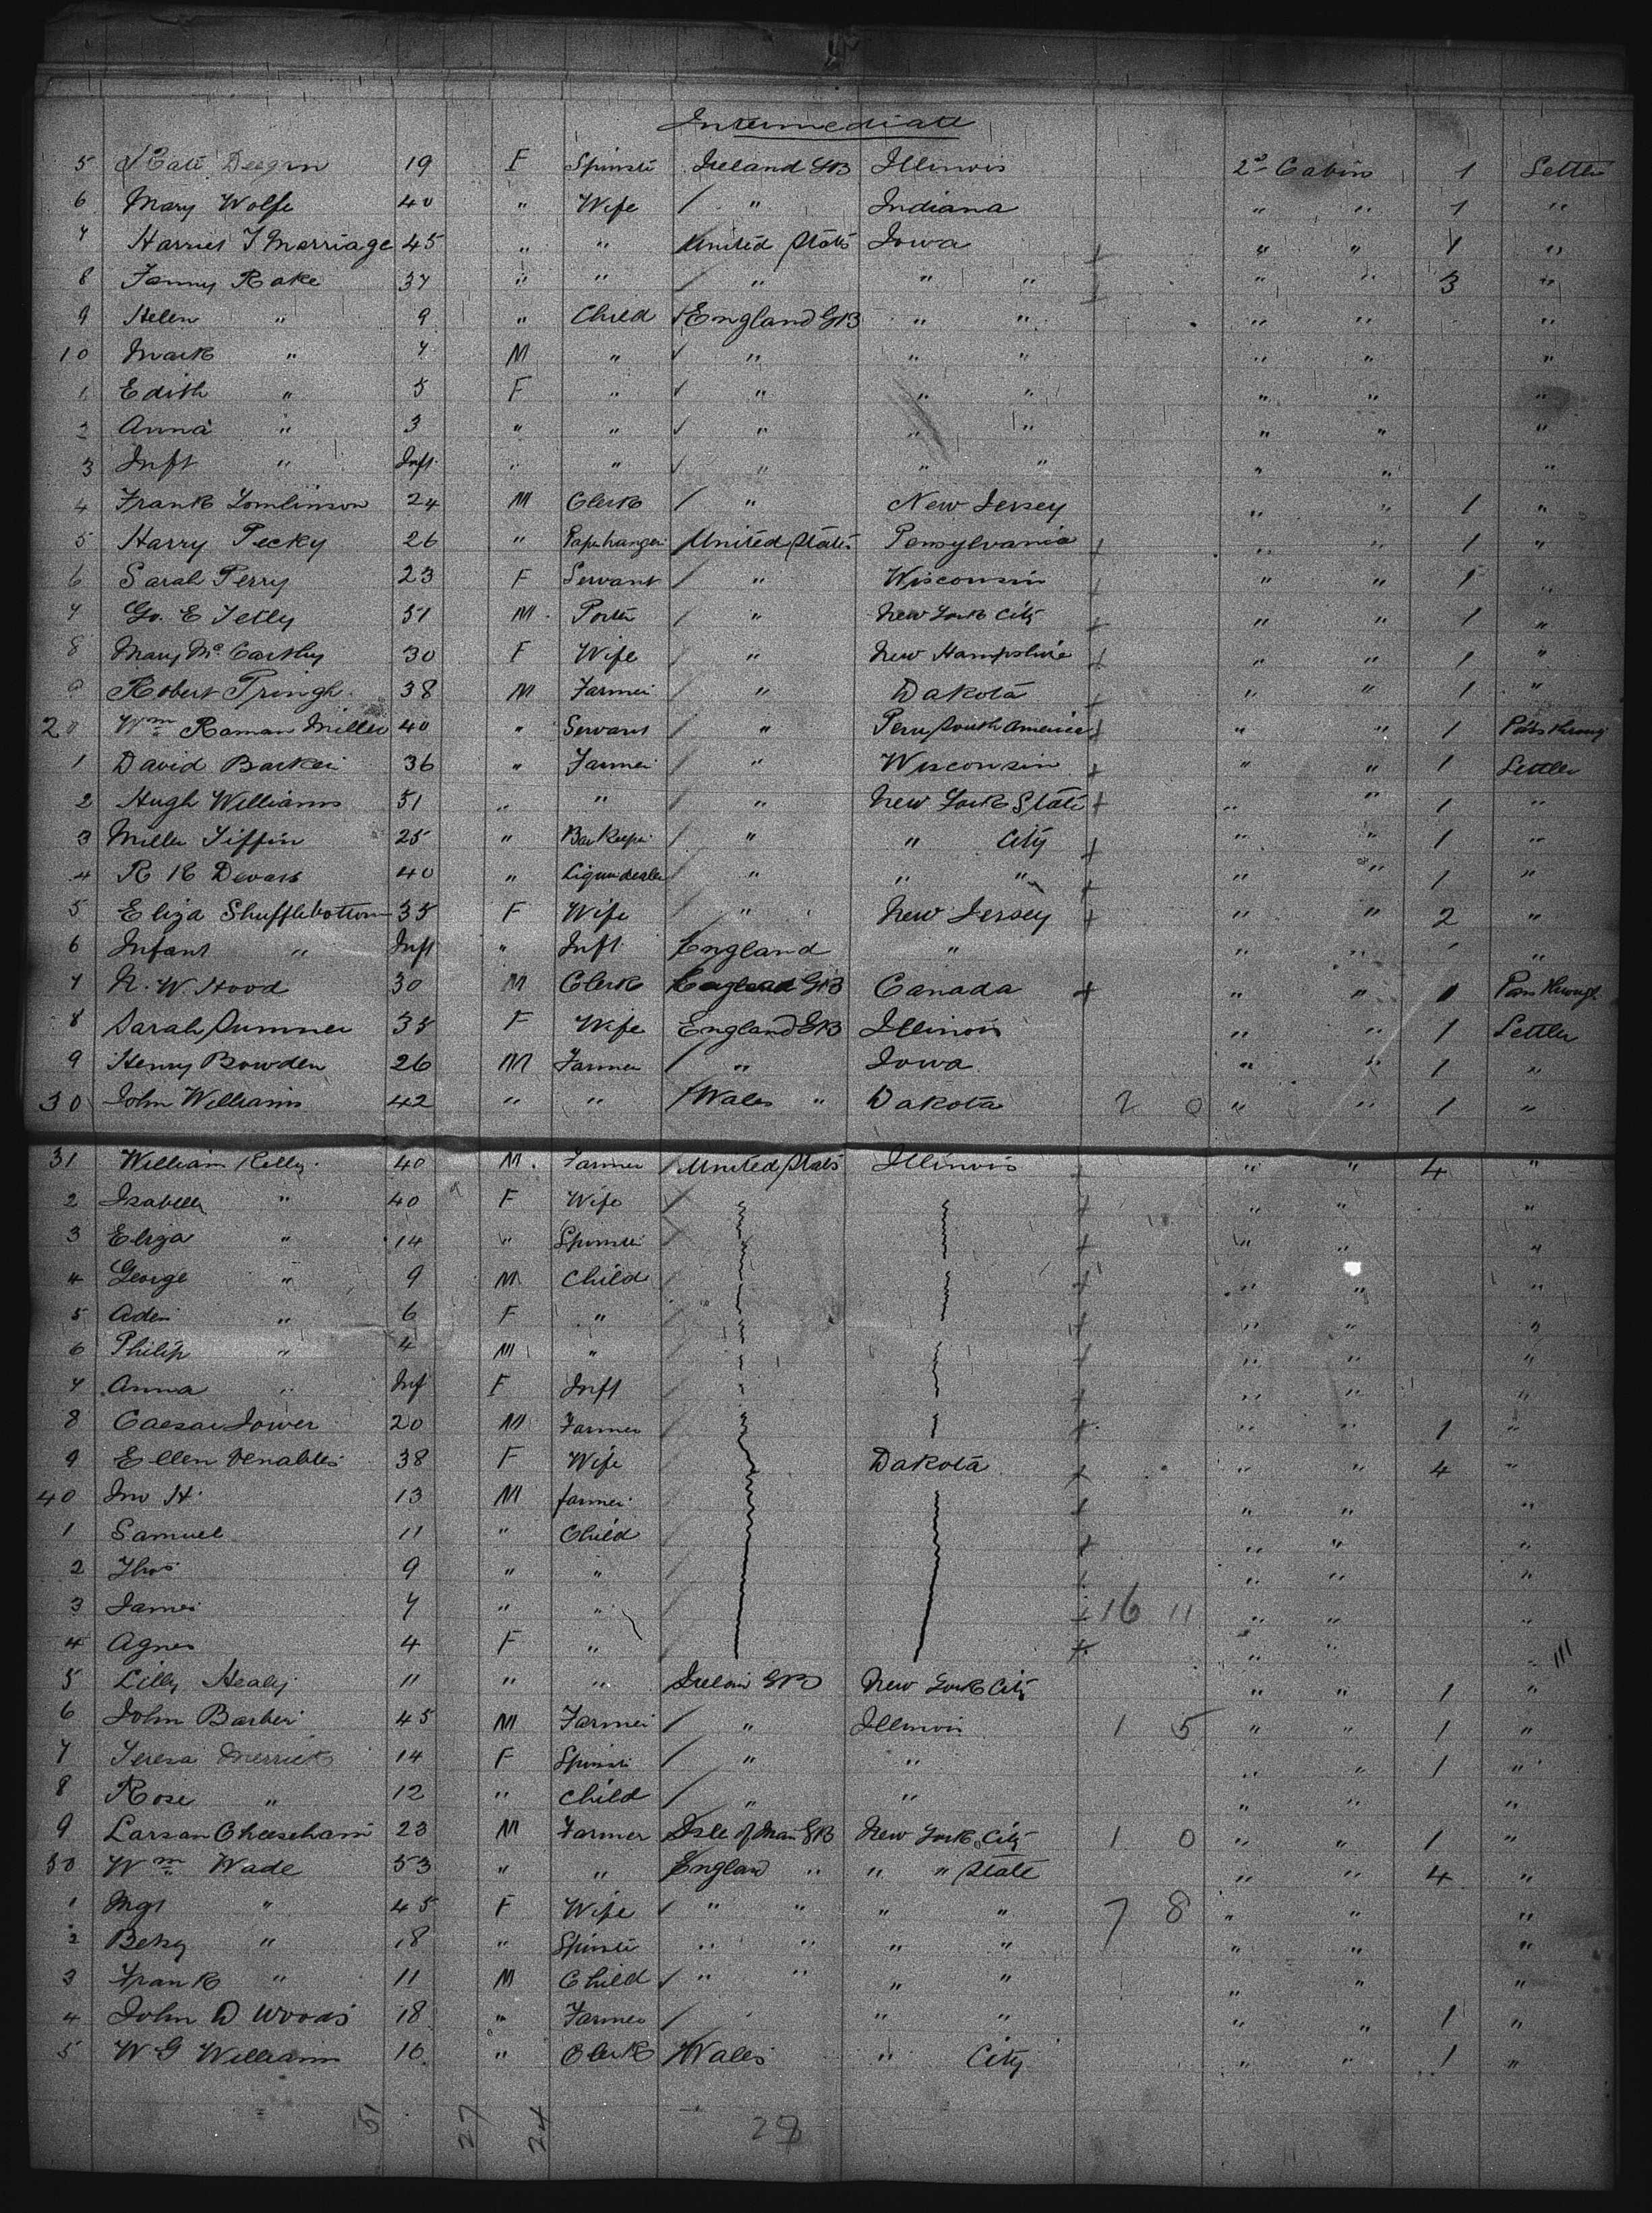 Intermediate
5 Kate Deegan 19 F Spinstr Ireland GB Illinois 2d Cabin 1 Settler
6 Mary Wolfe 40 " Wife / " Indiana " " 1 "
7 Harriet T Marriage 45 " " United States Iowa + " " 1 "
8 Fanny Rake 37 " " / " " " + " " 3 "
9 Helen " 9 " Child England GB " " " " "
10 Mark " 7 M " " " " " " "
1 Edith " 5 F " " " " " " "
2 Anna " 3 " " " " " " " "
3 Inft " Inft " " " " " " " "
4 Frank Tomlinson 24 M Clerk / " New Jersey " " 1 "
5 Harry Pecky 26 " Paperhanger United States Pensylvania + " " 1 "
6 Sarah Perry 23 F Servant / " Wisconsin + " " 1 "
7 Go. E Tetly 51 M. Porter / " New York City + " " 1 "
8 Mary McCarthy 30 F Wife / " New Hampshire + " " 1 "
9 Robert Pringh 38 M Farmer / " Dakota + " " 1 "
20 Wm Raman Miller 40 " Servant / " Peru South America + " " 1 Pass through
1 David Barker 36 " Farmer / " Wisconsin + " " 1 Settler
2 Hugh Williams 51 " " / " New York State + " " 1 "
3 Miller Tiffin 25 " Bar Keeper / " " City + " " 1 "
4 R K Devars 40 " Liquor dealer / " " " + " " 1 "
5 Eliza Shufflebottom 35 F Wife / " New Jersey + " " 2 "
6 Infant " Inft " Inft England " " " "
7 N. W. Hood 30 M Clerk England GB Canada + " " 1 Pass through
8 Sarah Sumner 35 F Wife England GB Illinois " " 1 Settler
9 Henry Bowden 26 M Farmer / " Iowa " " 1 "
30 John Williams 42 " " / Wales " Dakota 2 0 " " 1 "
31 William Kelly 40 M. Farmer / United States Illinois + " " 4 "
2 Isabella " 40 F Wife / + " " "
3 Eliza " 14 " Spinster / + " " "
4 George " 9 M Child / + " " "
5 " 6 F " / + " " "
6 Philip " 4 M " / + " " "
7 Anna " Inf F Inft / + " " "
8 Caesar 20 M Farmer / + " " 1 "
9 Ellen Venables 38 F Wife / Dakota + " " 4 "
40 Jno H. 13 M farmer / + " " "
1 Samuel 11 " Child / + " " "
2 Thos 9 " " / + " " "
3 James 7 " " / + 16 11 " " "
4 Agnes 4 F " / + " " "
5 Lilly Healy 11 " " Ireland GB New York City " " 1 "
6 John Barber 45 M Farmer / " Illinois 1 5 " " 1 "
7 Teresa Merrick 14 F Spinstr / " " " " 1 "
8 Rose " 12 " Child / " " " " "
9 Larsan Cheeseham 23 M Farmer Isle of Man GB New York City 1 0 " " 1 "
50 Wm Wade 53 " " England " " " State " " 4 "
1 Mgt " 45 F Wife " " " " 7 8 " " "
2 Betsy " 18 " Spinster " " " " " " "
3 Frank " 11 M Child " " " " " " "
4 John D Woods 18 " Farmer / " " " " 1 "
5 W G Williams 16 " Clerk Wales " City " " 1 "
51 27 24 28